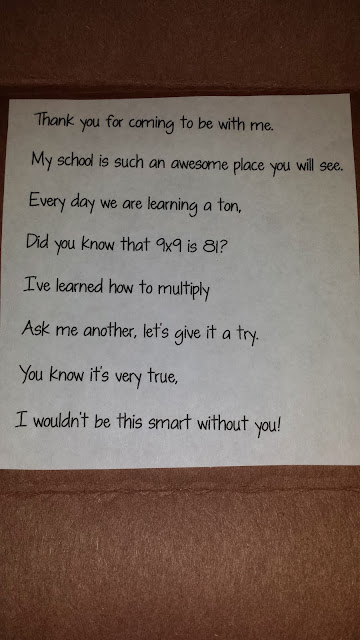 Thank you for coming to be with me.
My school is such an awesome place you will see.
Every day we are learning a ton,
Did you know that 9x9 is 81?
I've learned how to multiply
Ask me another, let's give it a try.
You know it's very true,
I wouldn't be this smart without you!